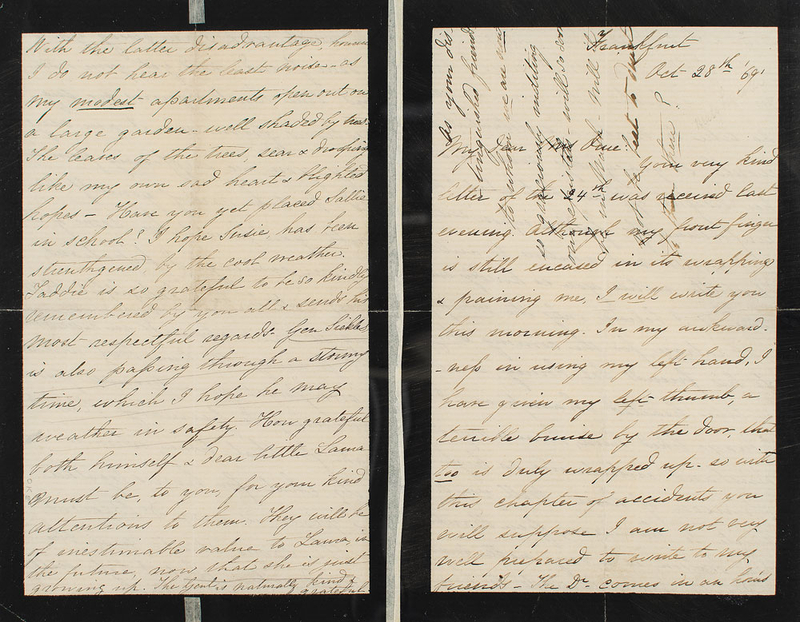 With the latter disadvantage,
I do not hear the least noise - as
my modest apartments open out on
a large garden - well shaded by trees.
The leaves of the trees, sear & drooping
like my own sad heart & blighted
hopes - Have you yet placed Sallie
in school? I hope Susie has been
strenthgened by the cool weather.
Taddie is so grateful to be so kindly
remembered by you all & sends his
most respectful regards. Gen Sickles
is also passing through a stormy
time, which I hope he may
weather in safety. How grateful
both himself & dear little Laura
must be, to you, for your kind
attentions to them. They will be
of inestimable value to Laura in
the future, now that she is just
growing up. The Gent is naturally kind &
grateful
Frankfurt
Oct 28th '69.
My dear Mrs Orne:
Your very kind
letter of the 24th was received last
evening. Although my front finger
is still encased in its wrapping
& paining me, I will write you
this morning. In my awkward-
-ness in using my left hand, I
have given my left thumb, a
terrible bruise by the door, that
too is duly wrapped up - so with
this chapter of accidents you
will suppose I am not very
well prepared to write to my
friends - The Dr comes in an hour's
as your dis
tinguished friend
to whom we are
so graciously inditing
will do so